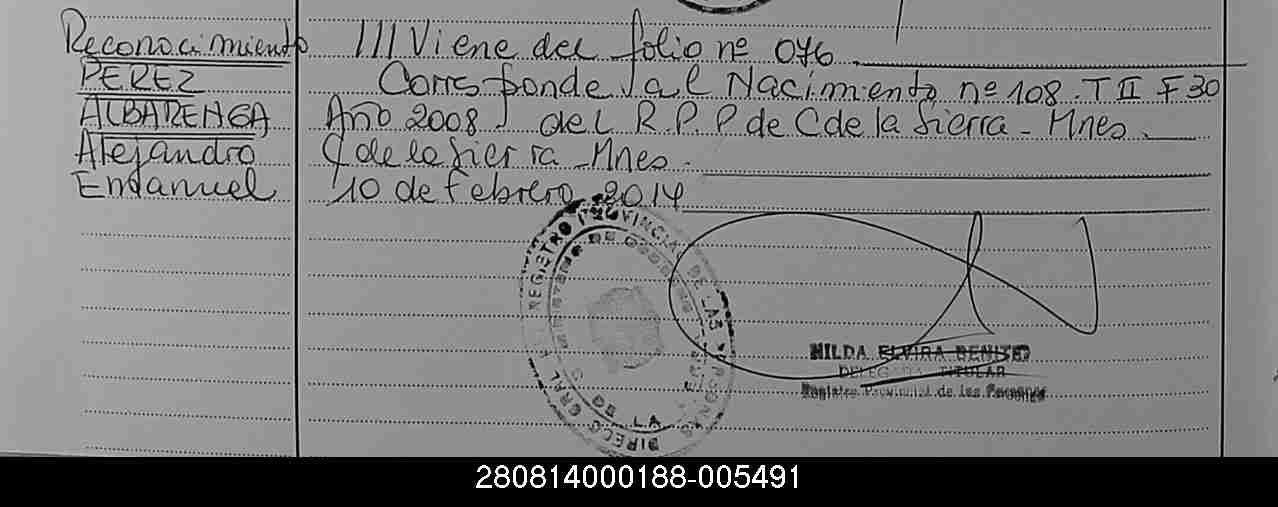 Reconocimiento
PEREZ
ALBARENGA
Alejandro
Emanuel
///Viene del folio nº 076.
Corresponde al Nacimiento nº 108. T II F 30
Año 2008 del R.P.P de C de la Sierra - Mnes.
C de la Sierra - Mnes.
10 de Febrero 2014
REGISTRO PROVINCIAL DE LAS PERSONAS
DIREC. GRAL
MINISTERIO DE GOBIERNO
HILDA ELVIRA BENITEZ
DELEGADA TITULAR
Registro Provincial de las Personas
280814000188-005491